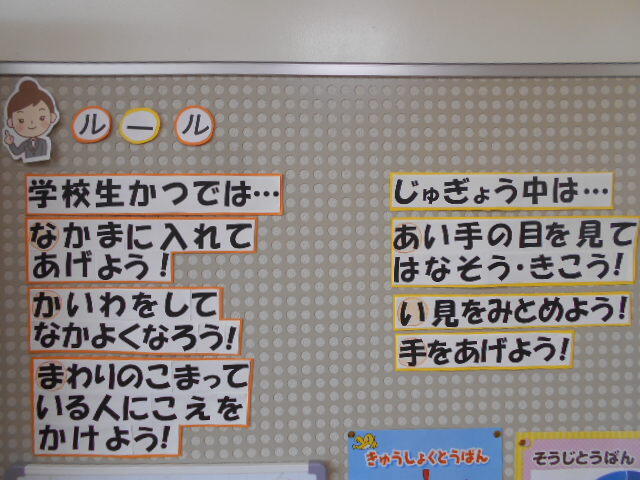 ルール
学校生かつでは…
なかまに入れて
あげよう！
かいわをして
なかよくなろう！
まわりのこまって
いる人にこえを
かけよう！
じゅぎょう中は…
あい手の目を見て
はなそう・きこう！
い見をみとめよう！
手をあげよう！
きゅうしょくとうばん
そうじとうばん